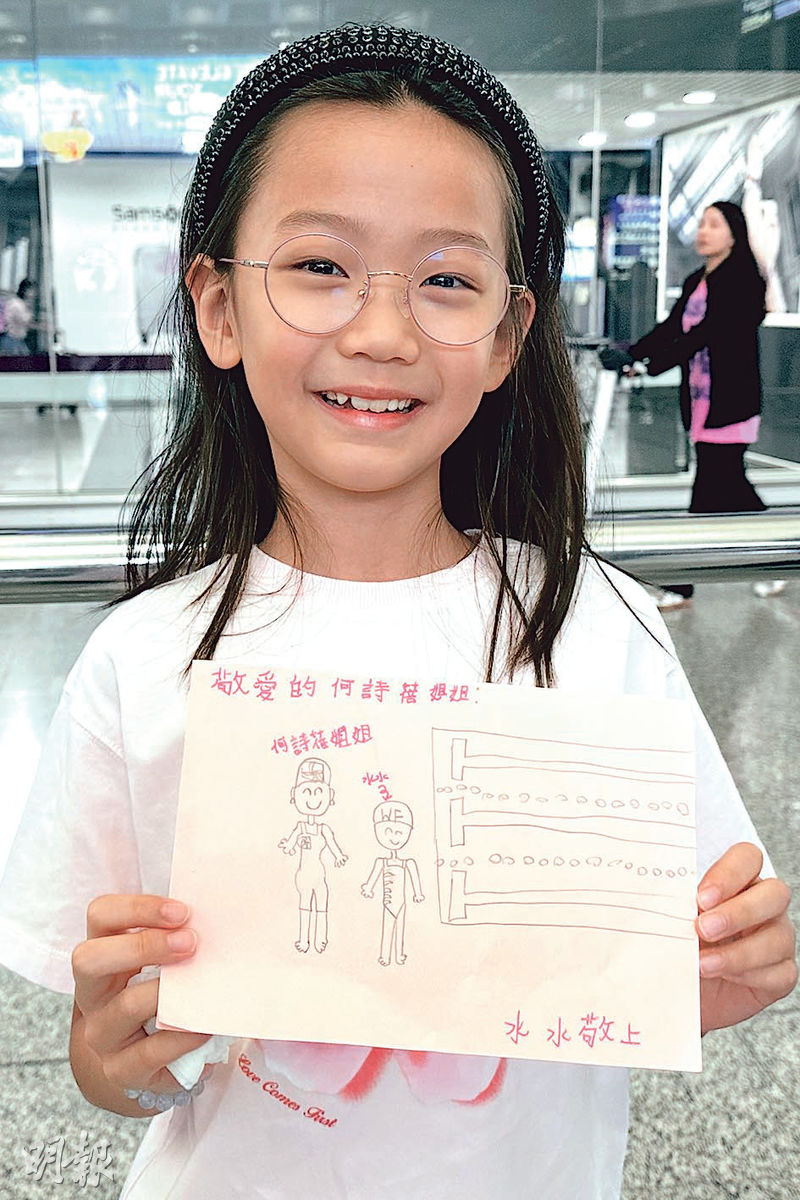 ELEVATE
Samso
敬愛的何詩蓓姐姐:
何詩蓓姐姐
水水
WF
水水敬上
Love Comes First
明報